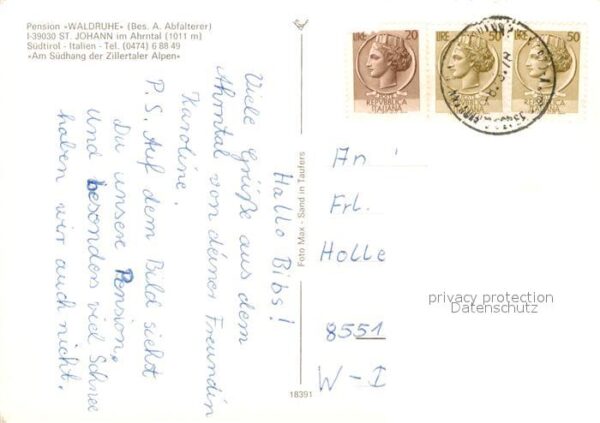 Pension »WALDRUHE« (Bes. A. Abfälterer)
I-39030 ST. JOHANN im Ahrntal (1011 m)
Südtirol - Italien - Tel. (0474) 6 88 49
»Am Südhang der Zillertaler Alpen«
Hallo Bibs!
Viele Grüße aus dem
Ahrntal von deiner Freundin
Karoline.
P.S. Auf dem Bild sieht
Du unsere Pension.
Und besonders viel Schnee
haben wir auch nicht.
Foto Max - Sand in Taufers
18391
LIRE 20
REPVBBLICA
ITALIANA
LIRE 50
REPVBBLICA
ITALIANA
LIRE 50
REPVBBLICA
ITALIANA
An
Frl.
Holle
8551
W-I
privacy protection
Datenschutz